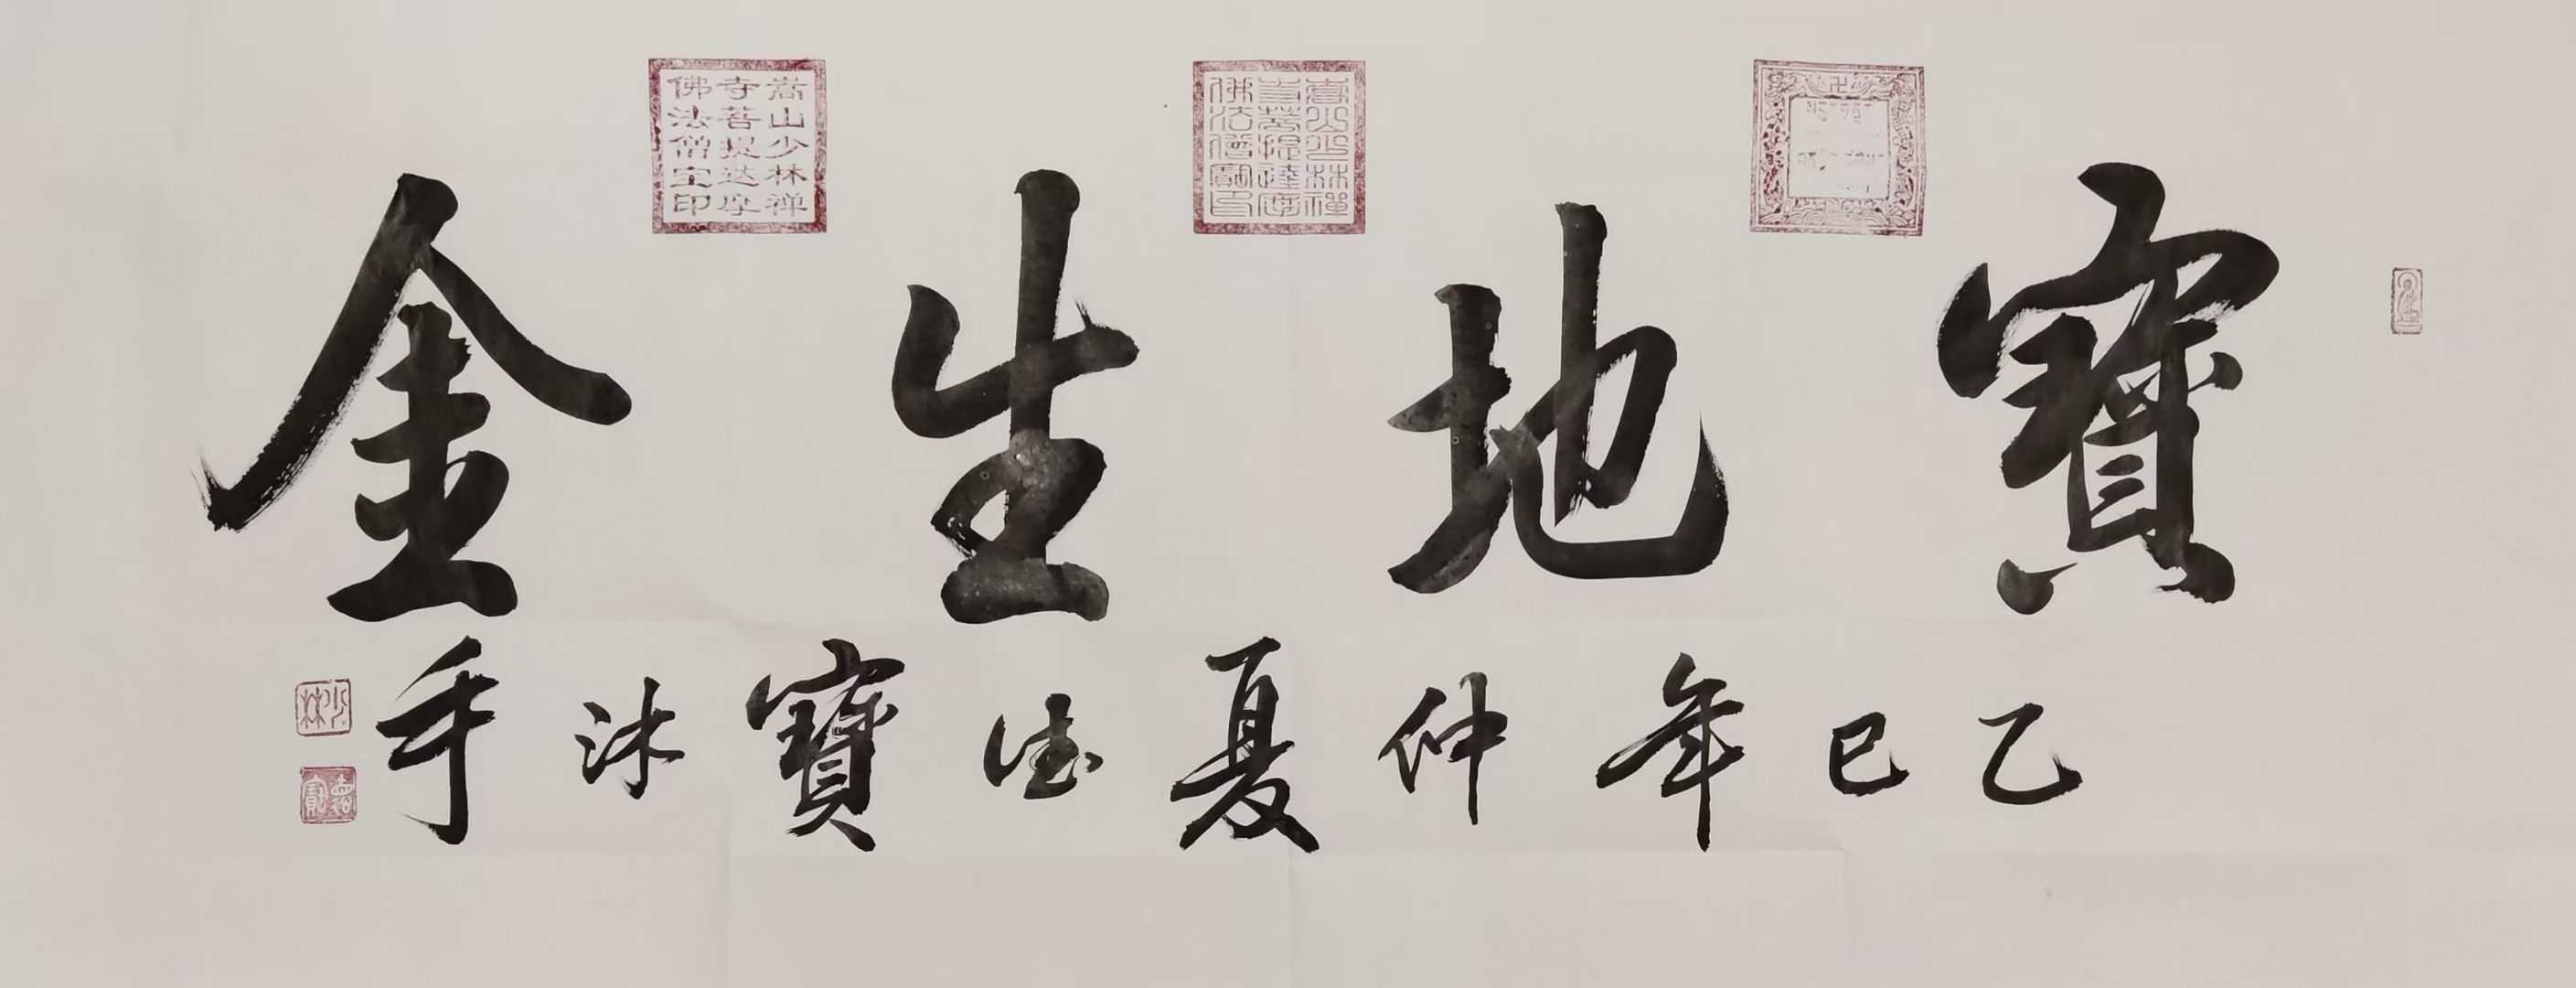 嵩山少林禪
寺菩提達摩
佛法僧寶印
嵩山少林禅
寺菩提达摩
佛法僧宝印
寶地生金
乙巳年仲夏德寶沐手
少林
德寶